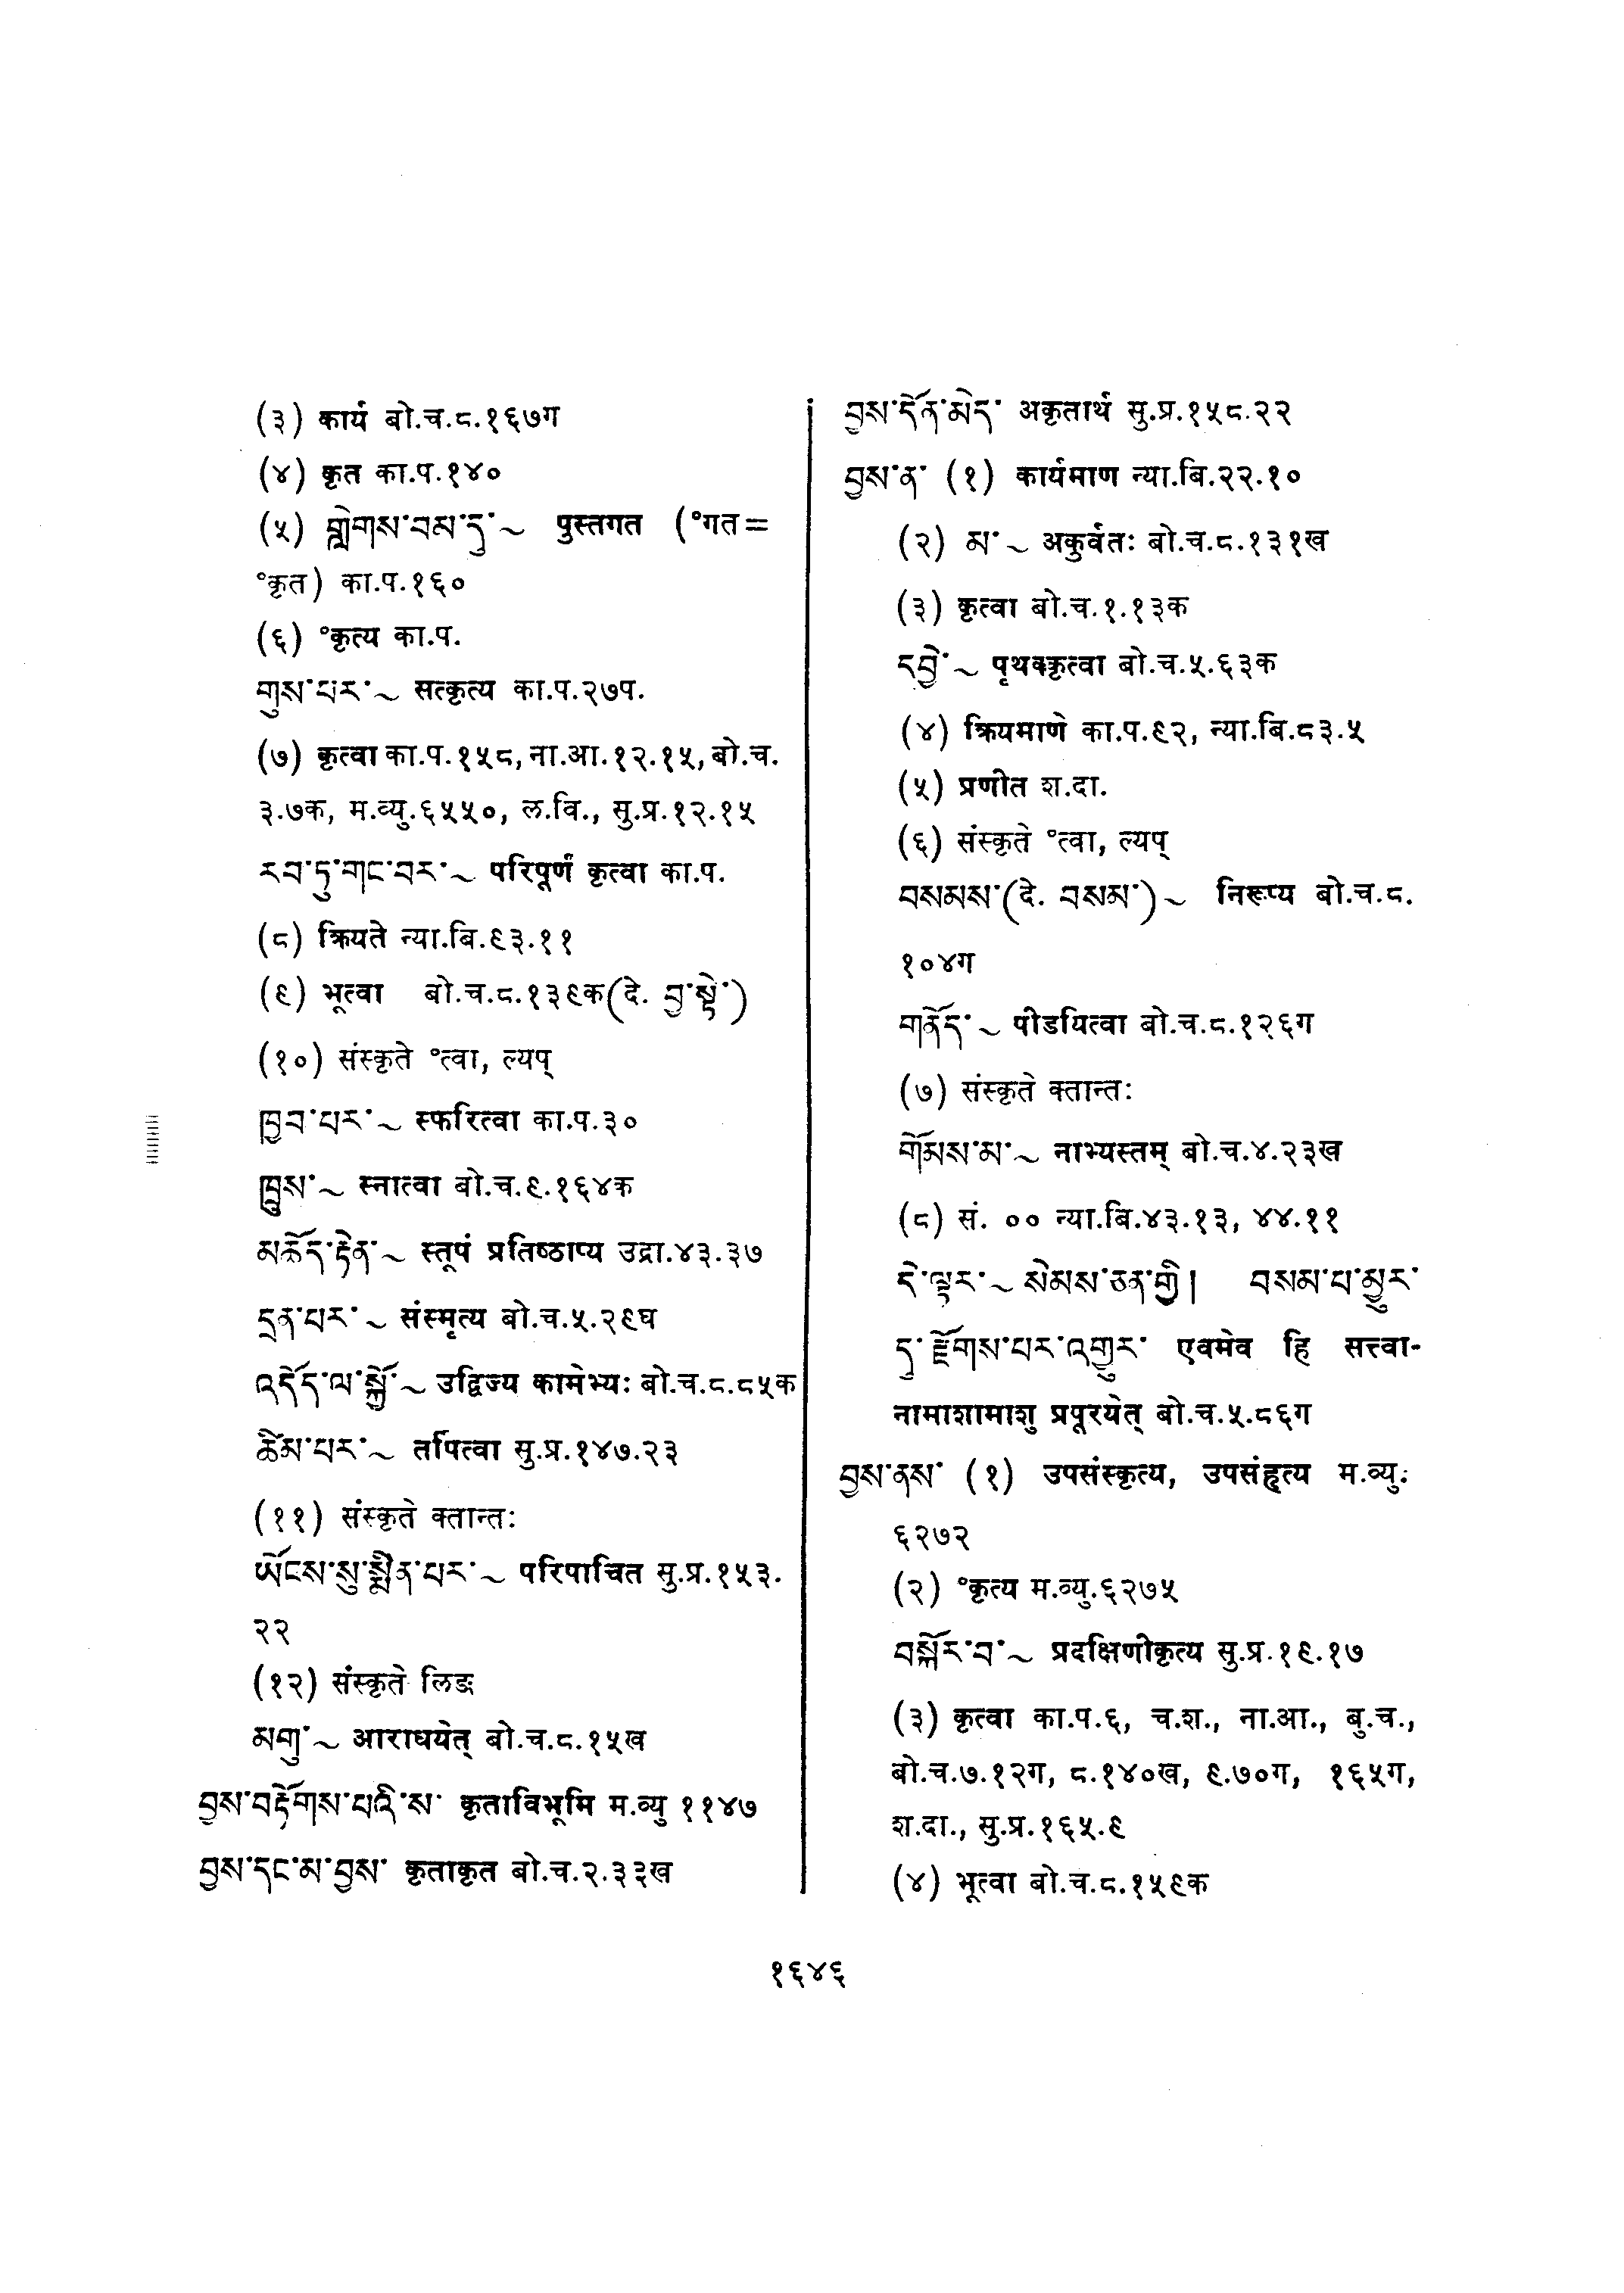 (३) कार्य बो.च.८.१६७ग
(४) कृत का.प.१४०
(५) གླེགས་བམ་དུ་ ~ पुस्तगत (°गत=
°कृत) का.प.१६०
(६) °कृत्य का.प.
གུས་པར་ ~ सत्कृत्य का.प.२७प.
(७) कृत्वा का.प.१५८, ना.आ.१२.१५, बो.च.
३.७क, म.व्यु.६५५०, ल.वि., सु.प्र.१२.१५
རབ་ཏུ་གང་བར་ ~ परिपूर्णं कृत्वा का.प.
(८) क्रियते न्या.बि.९३.११
(९) भूत्वा बो.च.८.१३९क(दे. བྱ་སྟེ་)
(१०) संस्कृते °त्वा, ल्यप्
ཁྱབ་པར་ ~ स्फरित्वा का.प.३०
ཁྲུས་ ~ स्नात्वा बो.च.९.१६४क
མཆོད་རྟེན་ ~ स्तूपं प्रतिष्ठाप्य उद्रा.४३.३७
དྲན་པར་ ~ संस्मृत्य बो.च.५.२९घ
འདོད་ལ་སྐྱོ་ ~ उद्विज्य कामेभ्यः बो.च.८.८५क
ཚིམ་པར་ ~ तर्पित्वा सु.प्र.१४७.२३
(११) संस्कृते क्तान्तः
ཡོངས་སུ་སྨིན་པར་ ~ परिपाचित सु.प्र.१५३.
२२
(१२) संस्कृते लिङ्ग
མགུ་ ~ आराधयेत् बो.च.८.१५ख
བྱས་བརྟོགས་པའི་ས་ कृताविभूमि म.व्यु ११४७
བྱས་དང་མ་བྱས་ कृताकृत बो.च.२.३३ख
བྱས་དོན་མེད་ अकृतार्थ सु.प्र.१५८.२२
བྱས་ན་ (१) कार्यमाण न्या.बि.२२.१०
(२) མ་ ~ अकुर्वतः बो.च.८.१३१ख
(३) कृत्वा बो.च.१.१३क
དབྱེ་ ~ पृथक्कृत्वा बो.च.५.६३क
(४) क्रियमाणे का.प.९२, न्या.बि.८३.५
(५) प्रणीत श.दा.
(६) संस्कृते °त्वा, ल्यप्
བསམས་(दे. བསམ་) ~ निरूप्य बो.च.८.
१०४ग
གནོད་ ~ पीडयित्वा बो.च.८.१२६ग
(७) संस्कृते क्तान्तः
གོམས་མ་ ~ नाभ्यस्तम् बो.च.४.२३ख
(८) सं. ०० न्या.बि.४३.१३, ४४.११
དེ་ལྟར་ ~ སེམས་ཅན་གྱི། བསམ་པ་མྱུར་
དུ་རྫོགས་པར་འགྱུར་ एवमेव हि सत्त्वा-
नामाशामाशु प्रपूरयेत् बो.च.५.८६ग
བྱས་ནས་ (१) उपसंस्कृत्य, उपसंहृत्य म.व्यु.
६२७२
(२) °कृत्य म.व्यु.६२७५
བསྐོར་བ་ ~ प्रदक्षिणीकृत्य सु.प्र.१९.१७
(३) कृत्वा का.प.६, च.श., ना.आ., बु.च.,
बो.च.७.१२ग, ८.१४०ख, ९.७०ग, १६५ग,
श.दा., सु.प्र.१६५.९
(४) भूत्वा बो.च.८.१५९क
१६४६